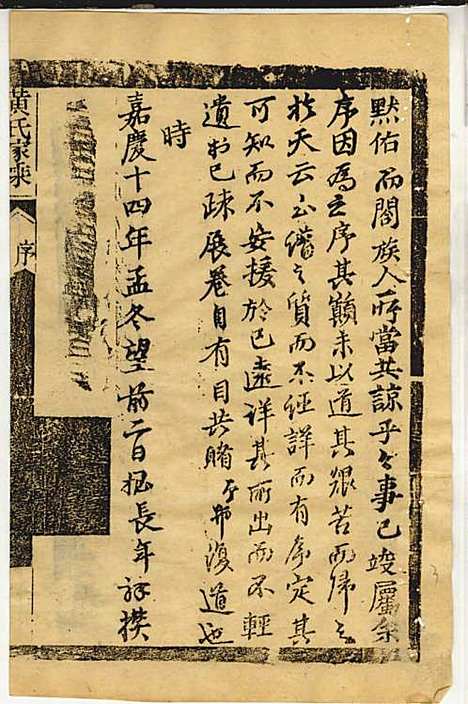 默佑而閤族人所當共諒乎之事已竣屬余
序因為之序其顛末以道其艱苦而歸之
於天云之質而不經詳而有条定其
可知而不安援於已遠詳其所出而不輕
遺於已疎展卷自有目共睹復道也
時
嘉慶十四年孟冬望前二日長年撰
黃氏家乘
序